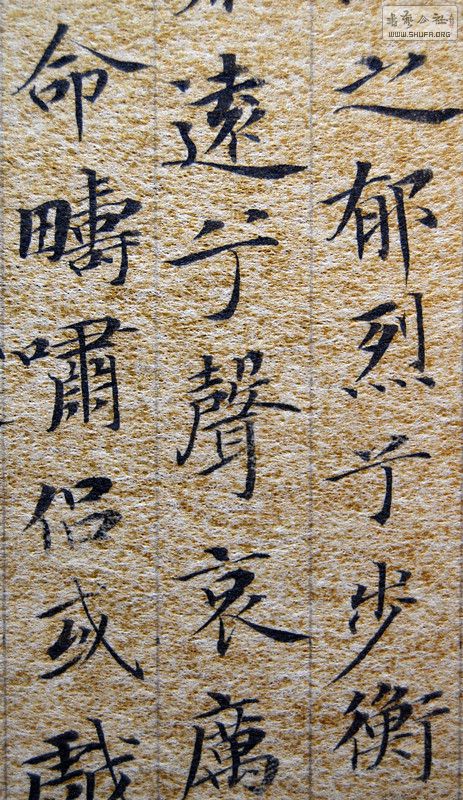 之郁烈兮步衡
遠兮聲哀厲
命疇嘯侶或戲
書藝公社
WWW.SHUFA.ORG